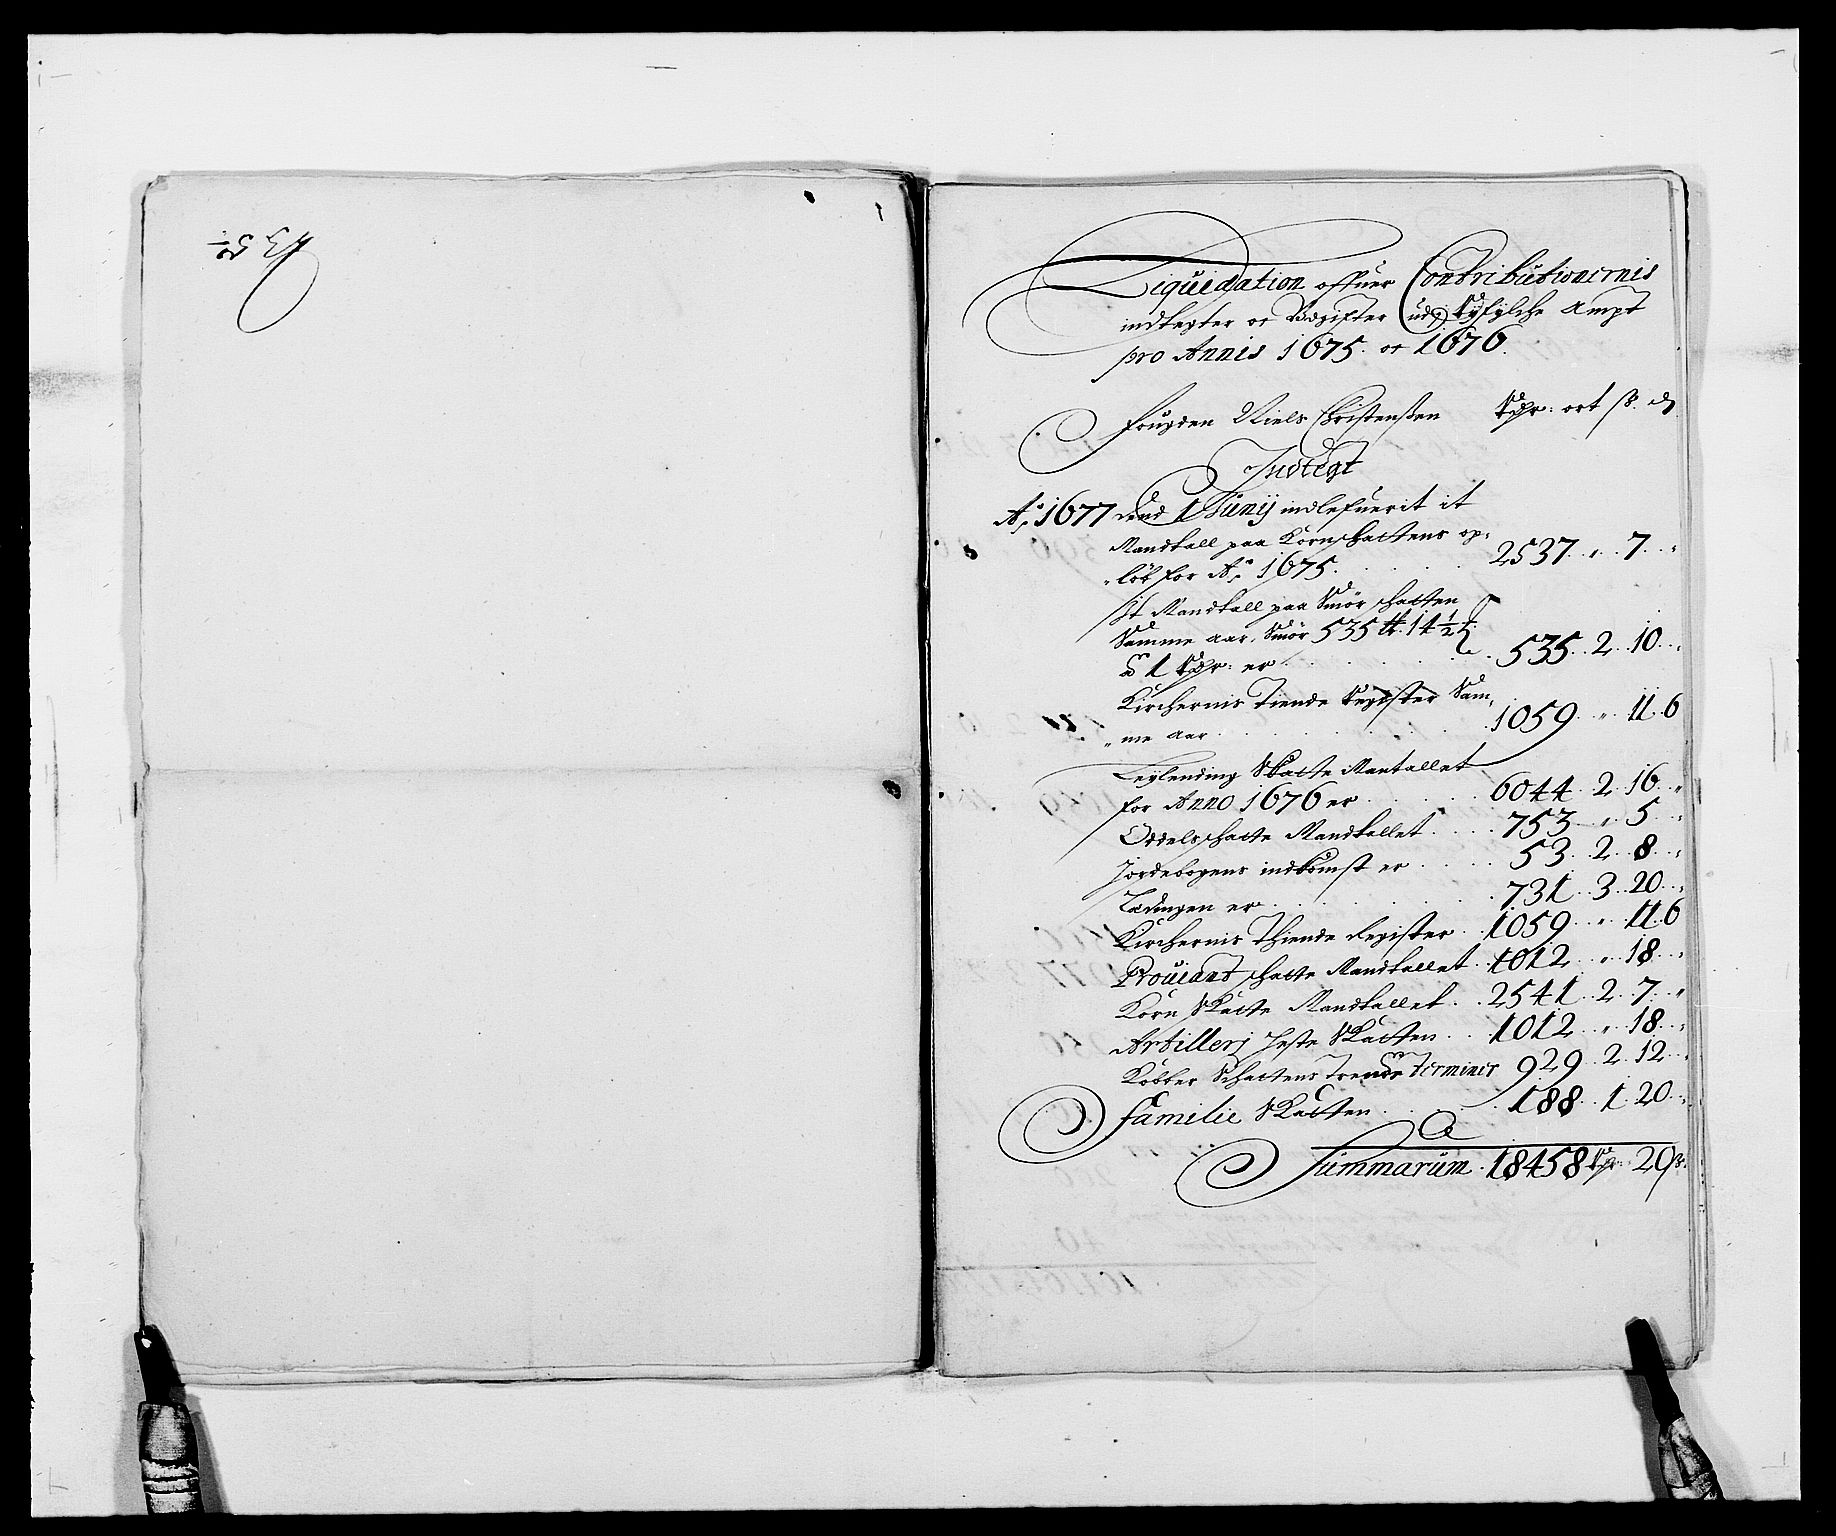 Liquidation offuer Contributionernis
indtegter oc Udgifter udj Ryfylche Ampt
pro Annis 1675. oc 1676.
fougden Niels Christensen Rdr: ort ß. d
Indtegt
Ao 1677 dend 1 Junij indlefuerit it
Mandtall paa Kornschattens op-
"löb for Ao 1675. 2537 " 7 "
It Mandtall paa Smör schatten
Samme aar, Smör 535 14½
a 1 Rdr: er 535 2 10 "
Kirchernis Tiende Register Sam-
"me aar 1059 " 11 6
Leylending Skatte Mantallet
for Anno 1676 er 6044 2 16 "
Oddelschatte Mandtallet 753 " 5 "
Jordebogens indkomst er 53 2 8 "
Ledingen er 731 3 20 "
Kirchernis Thiende Register 1059 " 11 6
Prouiant schatte Mandtallet 1012 " 18 "
Korn Skatte Mandtallet 2541 2 7 "
Artillerj Heste Skatten 1012 " 18 "
Kobber Schattens Trende Terminer 929 2 12 "
Familie Skatten 188 1 20 "
Summarum 18458 Rdr 20 ß.